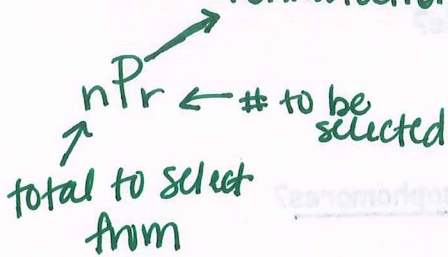 nPr ← # to be
selected
total to select
from